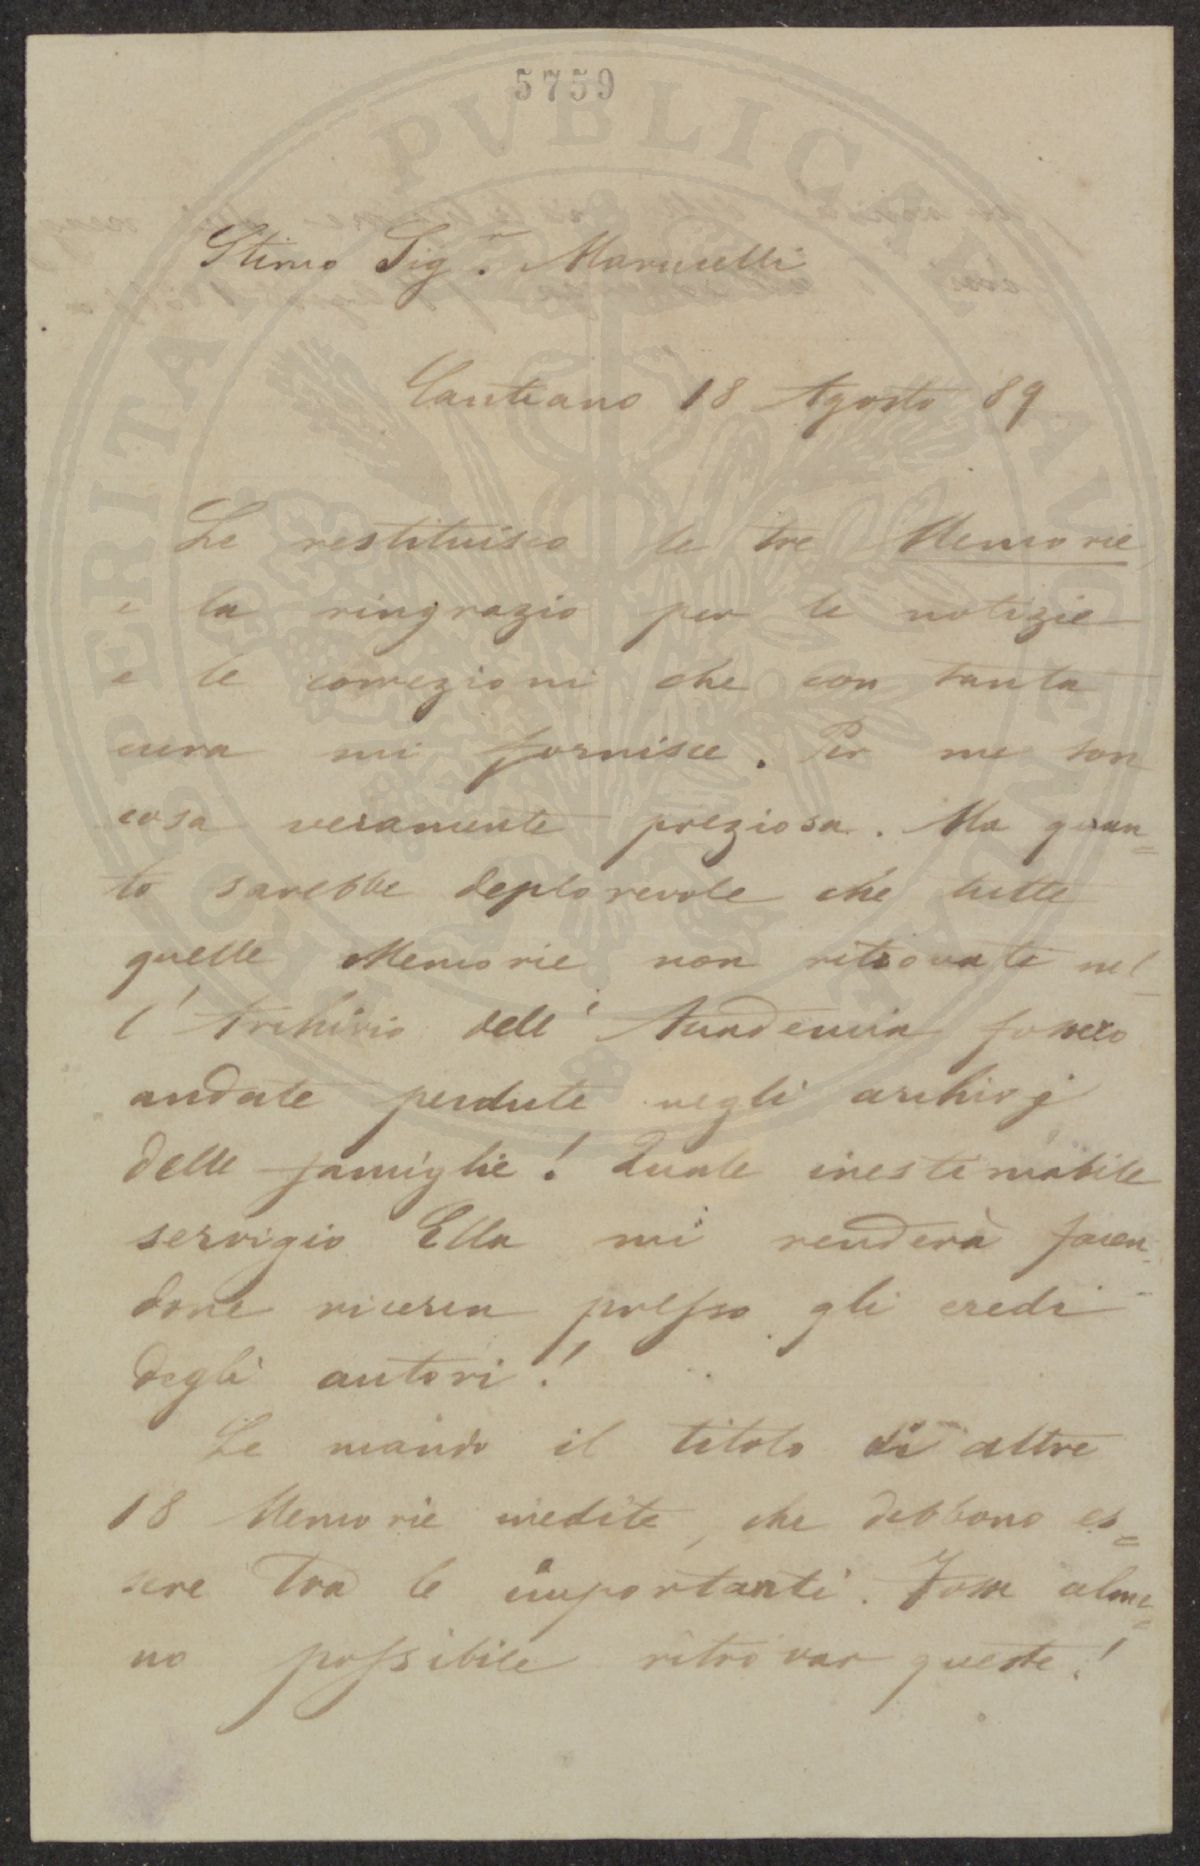 5759
Stimo Sigr. Marucelli
Cantiano 18 Agosto 89
Le restituisco le tre Memorie,
e la ringrazio per le notizie
e le correzioni che con tanta
cura mi fornisce. Per me son
cosa veramente preziosa. Ma quan=
to sarebbe deplorevole che tutte
quelle Memorie non ritrovate nel-
l'Archivio dell'Accademia fossero
andate perdute negli archivj
delle famiglie! Quale inestimabile
servigio Ella mi renderà facen-
done ricerca presso gli eredi
degli autori!
Le mando il titolo di altre
18 Memorie inedite, che debbono es=
sere tra le importanti. Fosse alme=
no possibile ritrovar queste!
PVBLICAE
PROSPERITATIS
AVGVMENTA